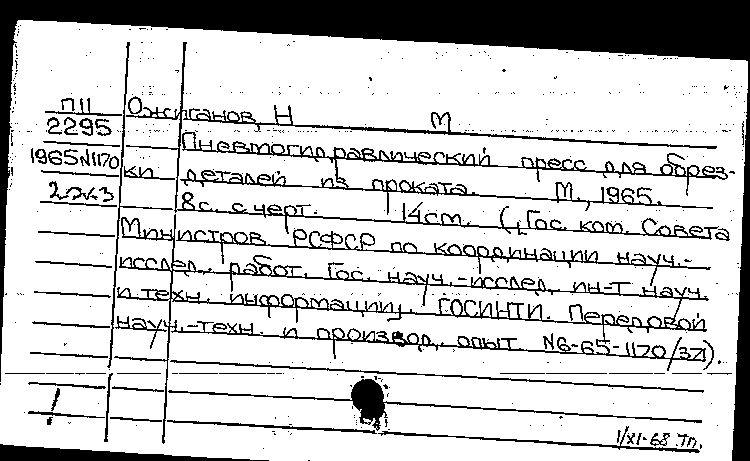 П11
2295
1965N1170
2-2-3
Ожиганов, Н М
Пневмогидравлический пресс для обрез-
ки деталей из проката. М., 1965.
8с. с черт. 14см. (Гос. ком. Совета
Министров РСФСР по координации науч.-
исслед. работ. Гос. науч.-исслед. ин-т науч.
и техн. информации. ГОСИНТИ. Передовой
науч.-техн. и производ. опыт N6-65-1170/37).
1/XI-68 Тп.